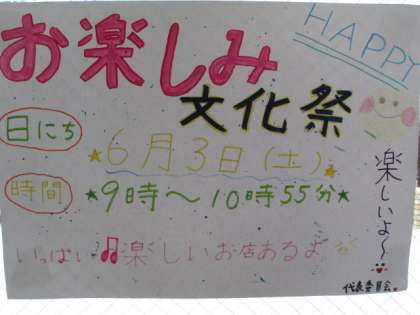 HAPPY
お楽しみ
文化祭
日にち
★6月3日(土)★
時間
★9時〜10時55分★
楽しいよ〜
いっぱい♫楽しいお店あるよ
代表委員会